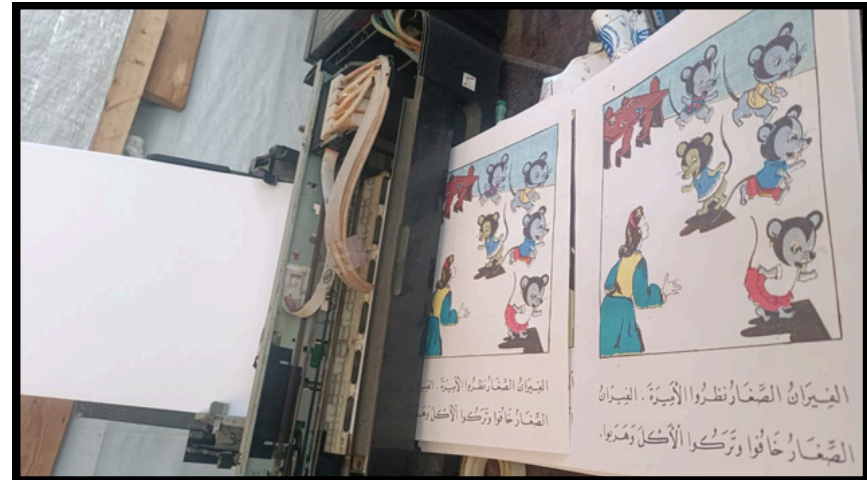 الفِيرَانُ الصِّغَارُ نظرُوا الأَمِيرَةَ . الفِيرَانُ
الصِّغَارُ خَافُوا وتَرَكُوا الْأَكْلَ وَهَرَبُوا.
الفِيرَانُ الصِّغَارُ نظرُوا الأَمِيرَةَ .
الصِّغَارُ خَافُوا وتَرَكُوا الْأَكْلَ